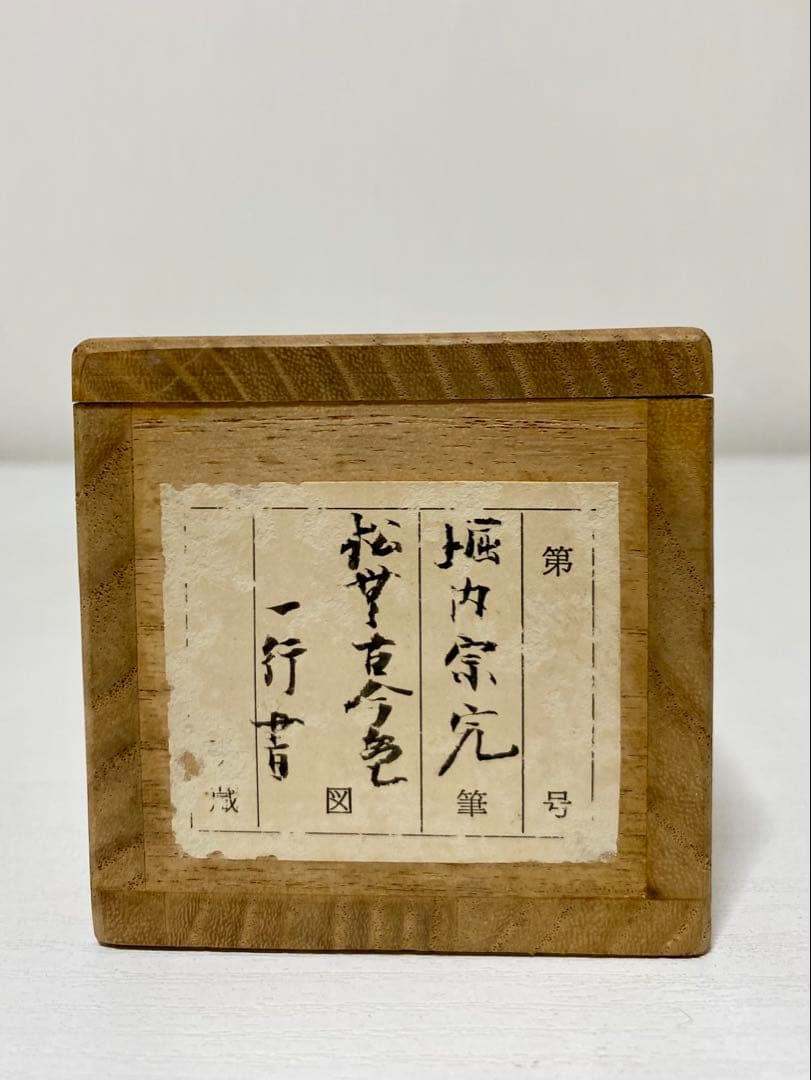 第 号
堀内宗完 筆
松無古今色 図
一行書
蔵